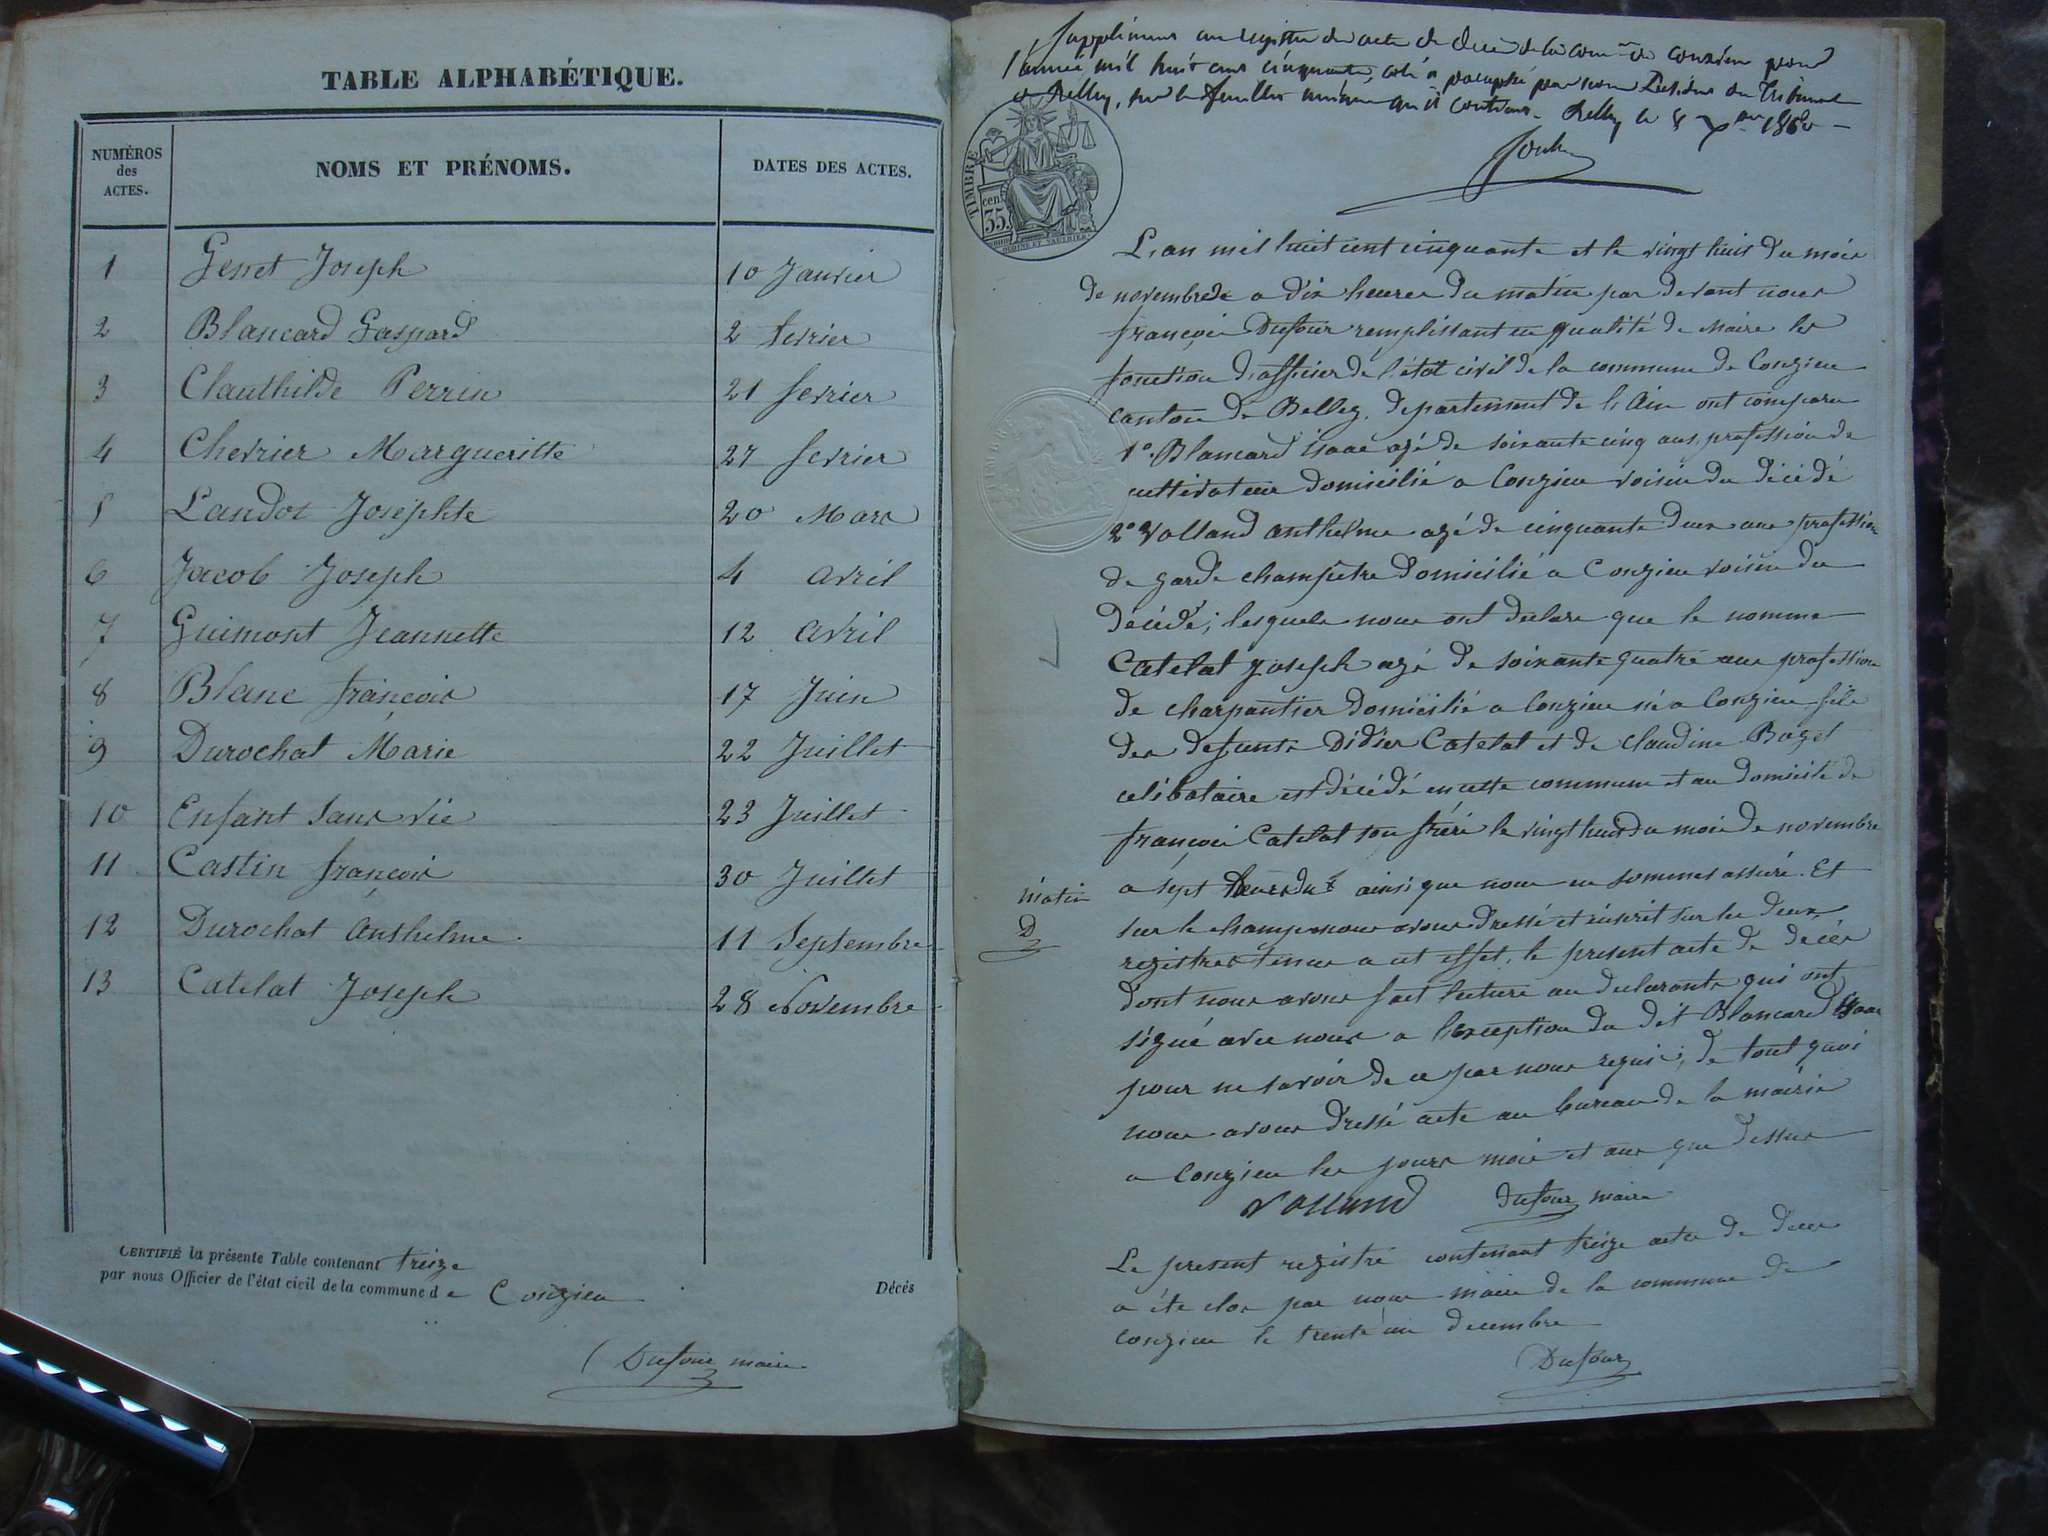 TABLE ALPHABÉTIQUE.
NUMÉROS des ACTES.
NOMS ET PRÉNOMS.
DATES DES ACTES.
1 Genet Joseph 10 Janvier
2 Blancard Gaspard 2 fevrier
3 Clauthilde Perrin 21 fevrier
4 Chevrier Margueritte 27 fevrier
5 Landoz Josephte 20 Mars
6 Jacob Joseph 4 avril
7 Guimont Jeannette 12 avril
8 Blanc françois 17 Juin
9 Durochat Marie 22 Juillet
10 Enfant Sans vie 23 Juillet
11 Castin françois 30 Juillet
12 Durochat Anthelme 11 Septembre
13 Catelat Joseph 28 Novembre
CERTIFIÉ la présente Table contenant treize
Décés
par nous Officier de l'état civil de la commune de Conzieu
Dufour maire
Supplément au registre des actes de décès de la com.ne de Conzieu pour
l'année mil huit cent cinquante, coté et paraphé par nous Président du Tribunal
de Belley, sur le feuillet unique qu'il contient. Belley le 8 Xbre 1850
TIMBRE
35 cent
OUDINÉ ET VAUTHIER
L'an mil huit cent cinquante et le vingt huit du mois
de novembre a dix heures du matin par devant nous
françois Dufour remplissant en qualité de Maire les
fonction d'officier de l'état civil de la commune de Conzieu
canton de Belley, departement de l'Ain ont comparu
1° Blancard isaac agé de soixante cinq ans, profession de
cultivateur domicilié a Conzieu voisin du décédé
2° Volland anthelme agé de cinquante deux ans profession
de garde champêtre domicilié a Conzieu voisin du
décédé; lesquels nous ont declare que le nomme
Catelat Joseph agé de soixante quatre ans profession
de charpantier domicilié a Conzieu né a Conzieu fils
des defunts Didier Catelat et de claudine Boget
célibataire est décédé en cette commune et au domicile de
françois Catelat son frère le vingt huit du mois de novembre
a sept heures du ainsi que nous nous en sommes assuré. Et
matin
D
sur le champ nous avons dressé et inscrit sur les deux
registres tenus a cet effet, le present acte de décès
dont nous avons fait lecture au declarants qui ont
signé avec nous a l'exception du dit Blancard isaac
pour ne savoir de ce par nous requis; de tout quoi
nous avons dressé acte au bureau de la mairie
a Conzieu les jours mois et ans que dessus
Volland Dufour maire
Le present registre contenant treize actes de décès
a été clos par nous maire de la commune de
Conzieu le trente un decembre
Dufour